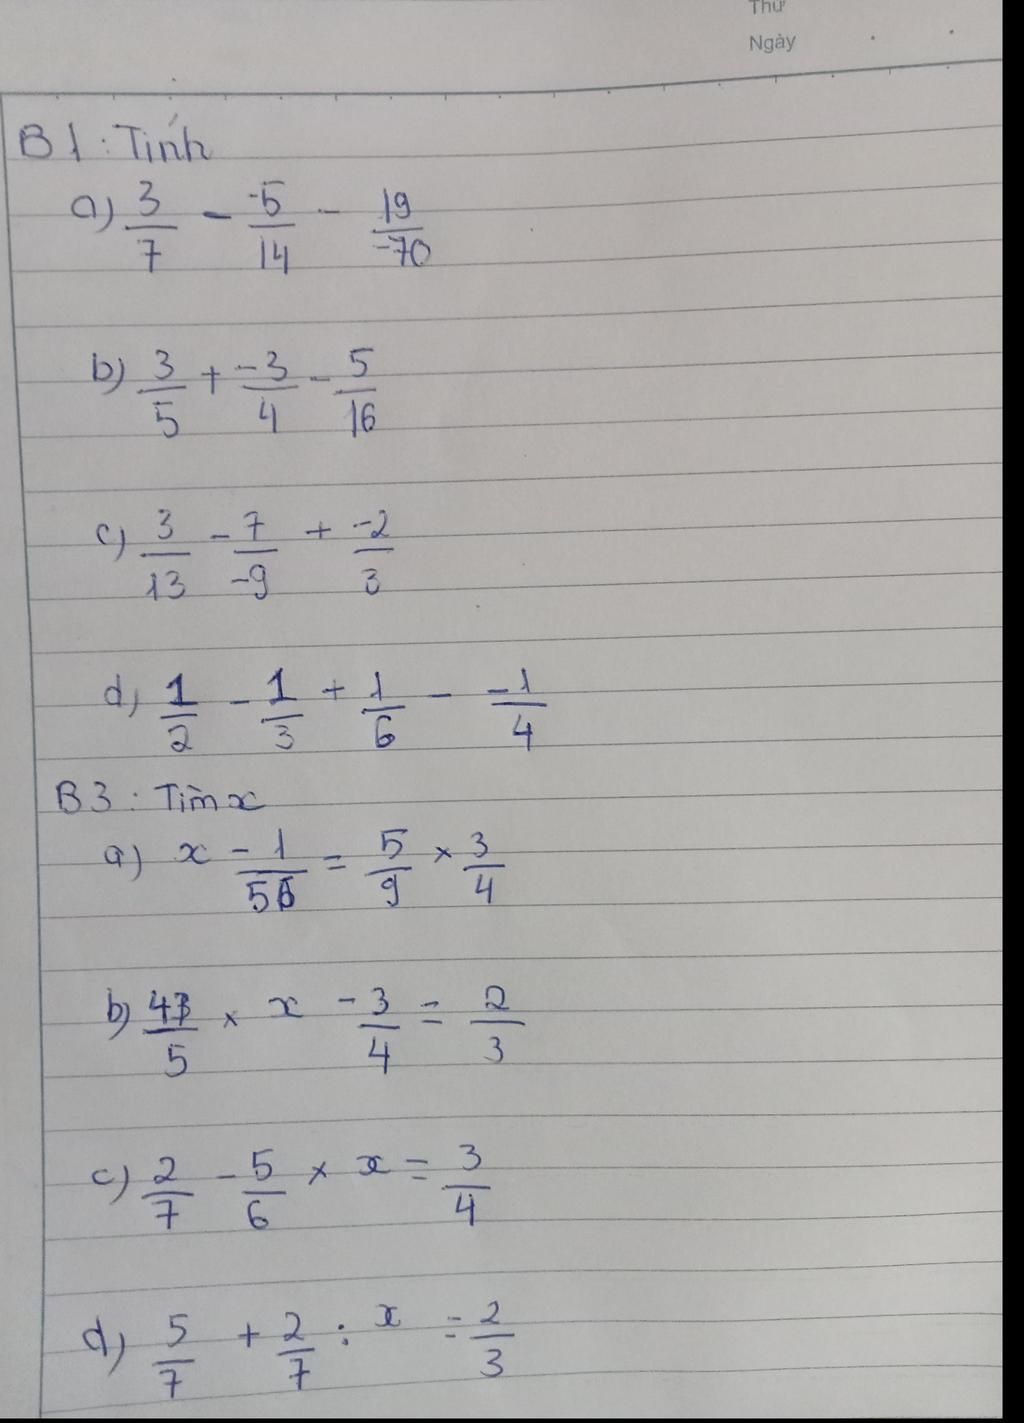 Thứ
Ngày
B1: Tính
a) 3/7 - -5/14 - 19/-70
b) 3/5 + -3/4 - 5/16
c) 3/13 - 7/-9 + -2/3
d) 1/2 - 1/3 + 1/6 - -1/4
B3: Tìm x
a) x - 1/56 = 5/9 × 3/4
b) 43/5 × x - 3/4 = 2/3
c) 2/7 - 5/6 × x = 3/4
d) 5/7 + 2/7 : x = 2/3